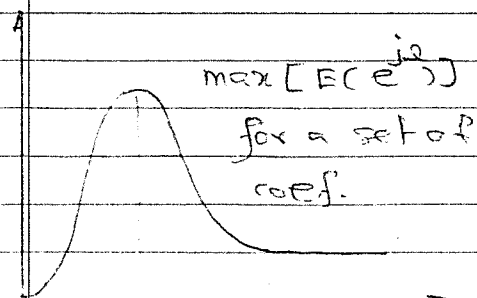 max [E(e^jΩ)]
for a set of
coef.